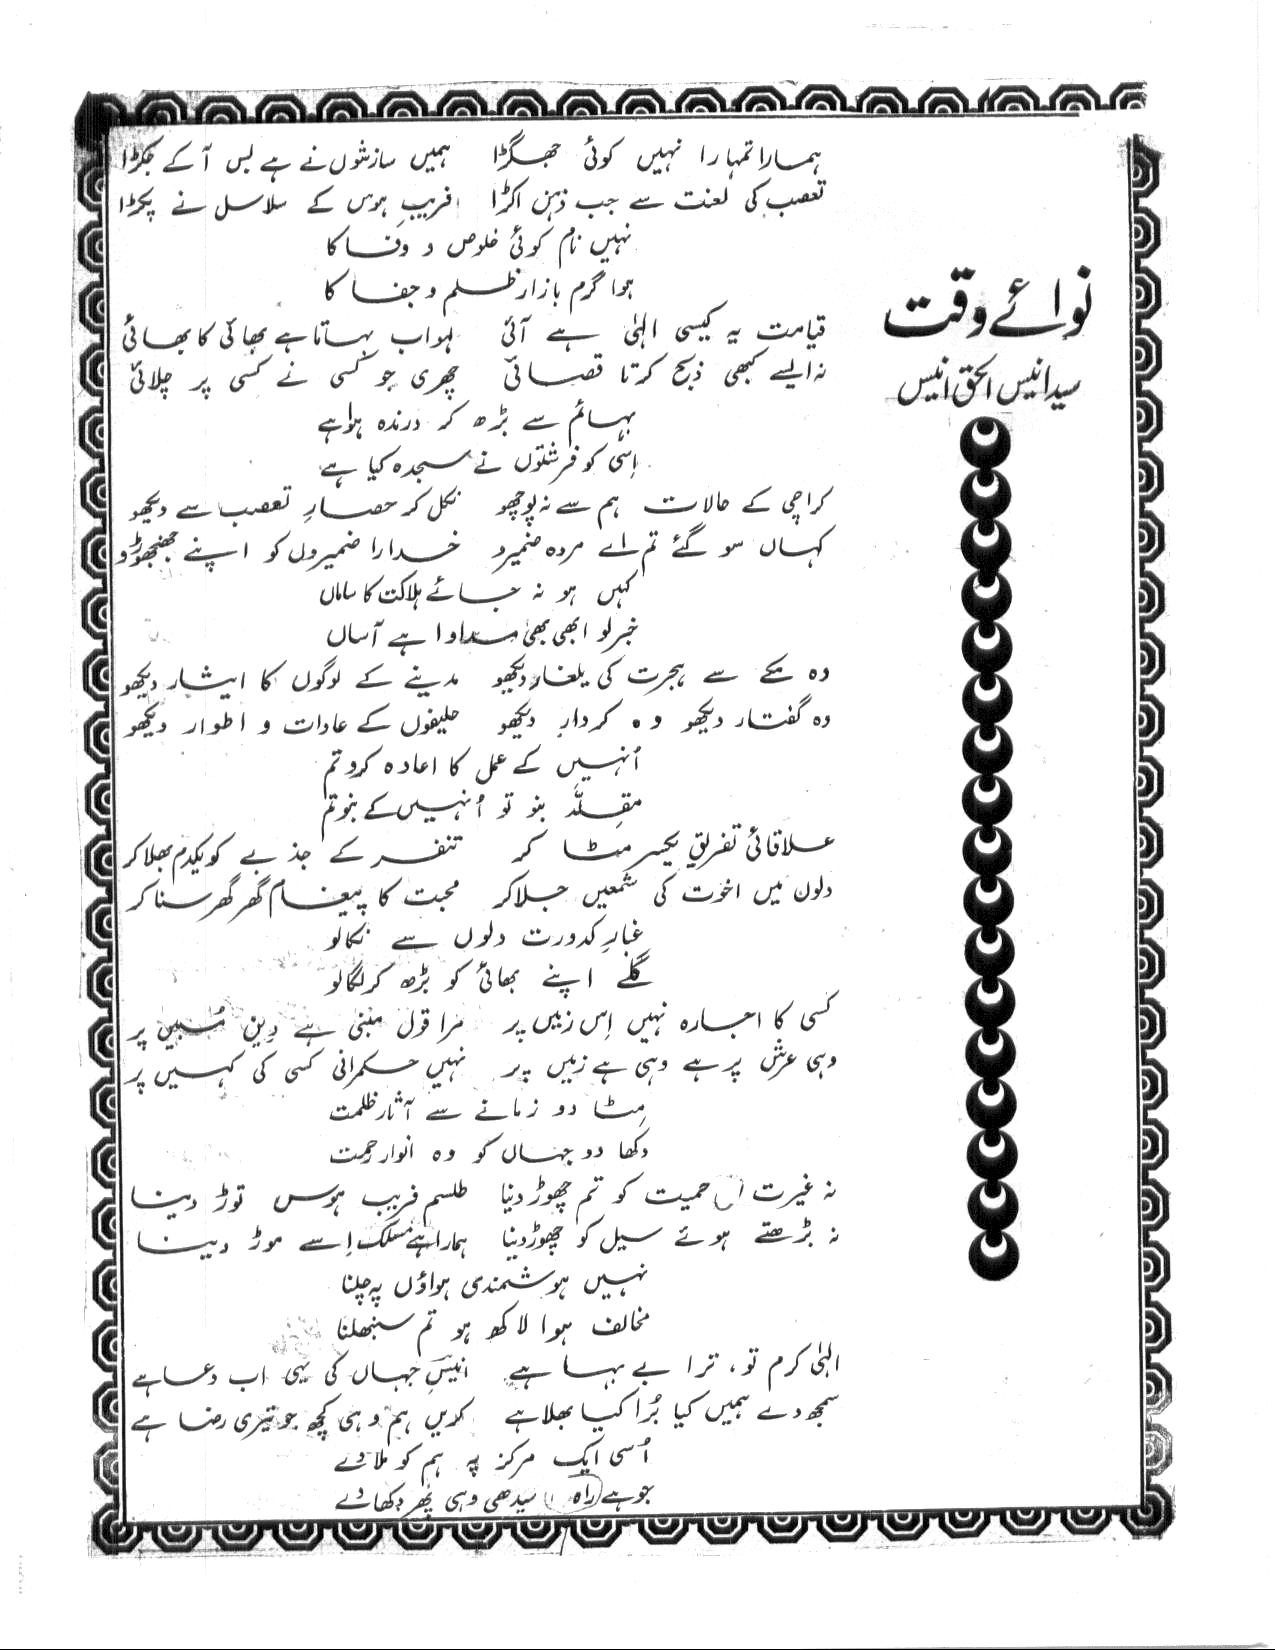 نوائے وقت
سید انیس الحق انیس
ہمارا تمہارا نہیں کوئی جھگڑا ہمیں سازشوں نے ہے بس آ کے جکڑا
تعصب کی لعنت سے جب ذہن اکڑا فریبِ ہوس کے سلاسل نے پکڑا
نہیں نام کوئی خلوص و وفا کا
ہوا گرم بازار ظلم و جفا کا
قیامت یہ کیسی الٰہی ہے آئی لہو اب بہاتا ہے بھائی کا بھائی
نہ ایسے کبھی ذبح کرتا قصائی چھری جو کسی نے کسی پر چلائی
بہائم سے بڑھ کر درندہ ہوا ہے
اِسی کو فرشتوں نے سجدہ کیا ہے
کراچی کے حالات ہم سے نہ پوچھو نکل کر حصارِ تعصب سے دیکھو
کہاں سو گئے تم اے مردہ ضمیرو خدارا ضمیروں کو اپنے جھنجھوڑو
کہیں ہو نہ جائے ہلاکت کا ساماں
خبر لو ابھی بھی مداوا ہے آساں
وہ مکے سے ہجرت کی یلغار دیکھو مدینے کے لوگوں کا ایثار دیکھو
وہ گفتار دیکھو وہ کردار دیکھو حلیفوں کے عادات و اطوار دیکھو
اُنہیں کے عمل کا اعادہ کرو تم
مقلِّد بنو تو اُنہیں کے بنو تم
علاقائی تفریق یکسر مٹا کر تنفر کے جذبے کو یکدم بھلا کر
دلوں میں اخوت کی شمعیں جلا کر محبت کا پیغام گھر گھر سنا کر
غبارِ کدورت دلوں سے نکالو
گلے اپنے بھائی کو بڑھ کر لگا لو
کسی کا اجارہ نہیں اِس زمیں پر مرا قول مبنی ہے دینِ مُبیں پر
وہی عرش پر ہے وہی ہے زمیں پر نہیں حکمرانی کسی کی کہیں پر
مِٹا دو زمانے سے آثارِ ظلمت
دکھا دو جہاں کو وہ انوار رحمت
نہ غیرت حمیت کو تم چھوڑ دینا طلسم فریب ہوس توڑ دینا
نہ بڑھتے ہوئے سیل کو چھوڑ دینا ہمارا ہے مسلک اِسے موڑ دینا
نہیں ہوشمندی ہواؤں پہ چلنا
مخالف ہوا لاکھ ہو تم سنبھلنا
الٰہی کرم تو، ترا بے بہا ہے انیسِ جہاں کی یہی اب دعا ہے
سمجھ دے ہمیں کیا بُرا کیا بھلا ہے کریں ہم وہی کچھ جو تیری رضا ہے
اُسی ایک مرکز پہ ہم کو ملا دے
جو ہے راہ سیدھی وہی پھر دکھا دے